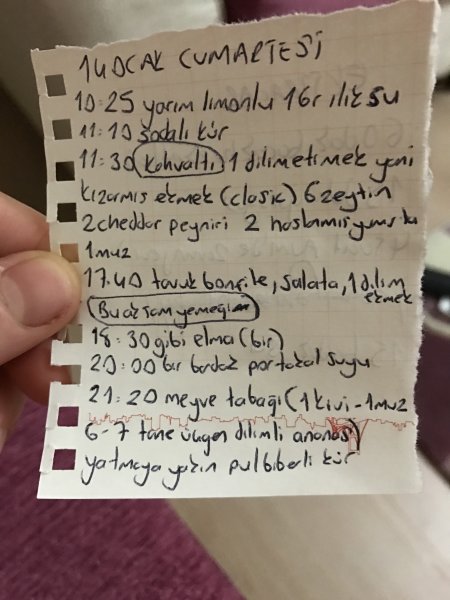 14 OCAK CUMARTESİ
10:25 yarım limonlu 1 Gr ılık su
11:10 Sodalı kür
11:30 Kahvaltı 1 dilim etimek yani
kızarmış ekmek (clasic) 6 zeytin
2 cheddar peyniri 2 haşlamış yumurta
1 muz
17.40 tavuk bonfile, salata, 1 dilim
ekmek
Bu akşam yemeği
18:30 gibi elma (bir)
20:00 bir bardak portakal suyu
21:20 meyve tabağı (1 kivi - 1 muz
6-7 tane üçgen dilimli ananas)
yatmaya yakın pulbiberli kür